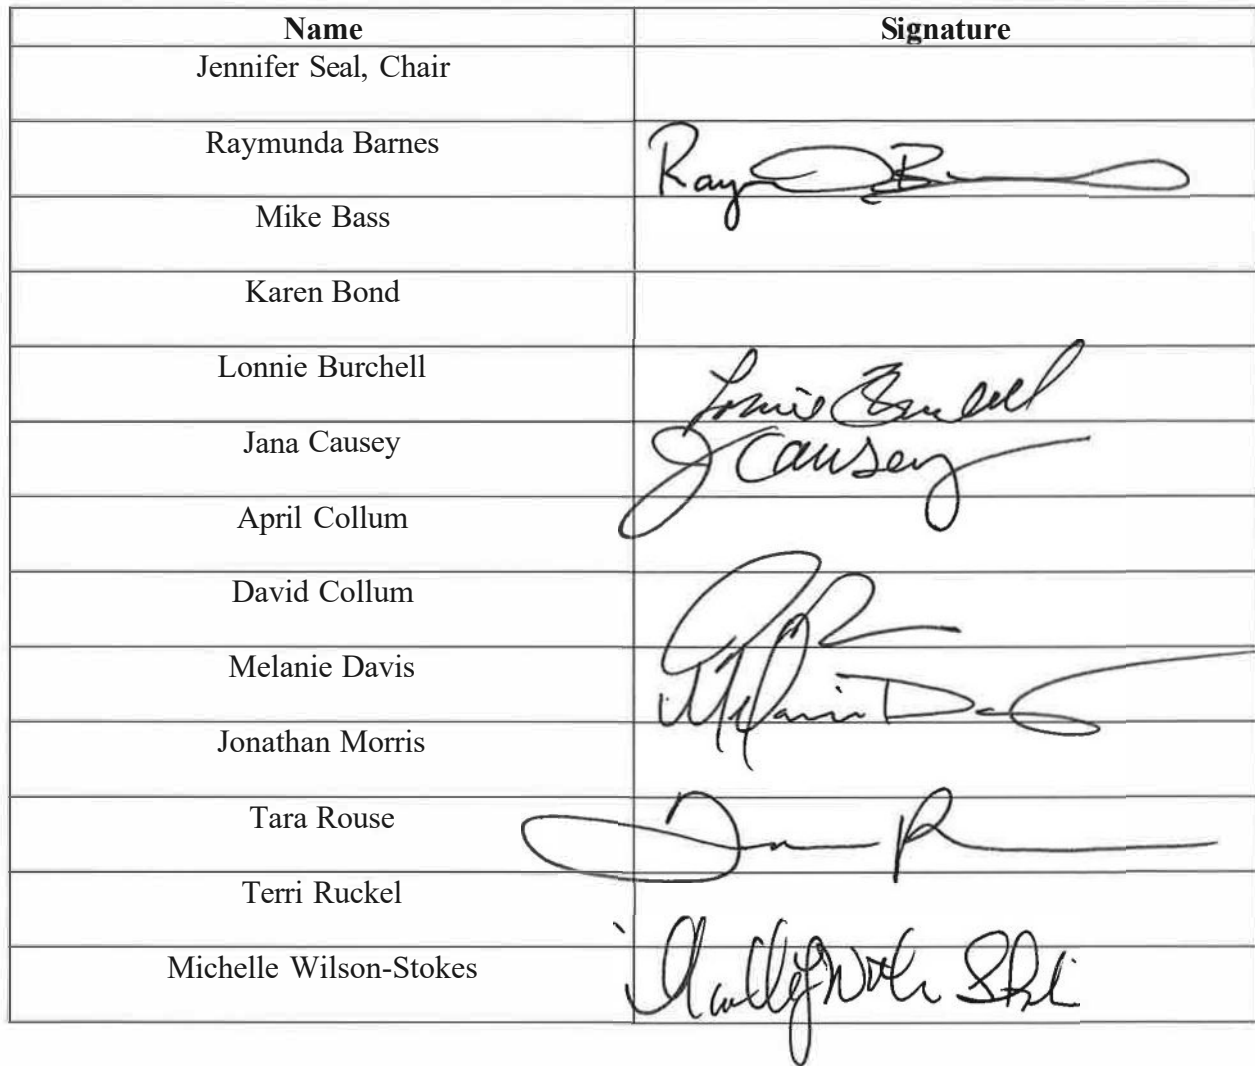 Name Signature
Jennifer Seal, Chair
Raymunda Barnes Ray B
Mike Bass
Karen Bond
Lonnie Burchell Lonnie Burchell
Jana Causey J Causey
April Collum
David Collum
Melanie Davis Melanie Da
Jonathan Morris
Tara Rouse
Terri Ruckel
Michelle Wilson-Stokes